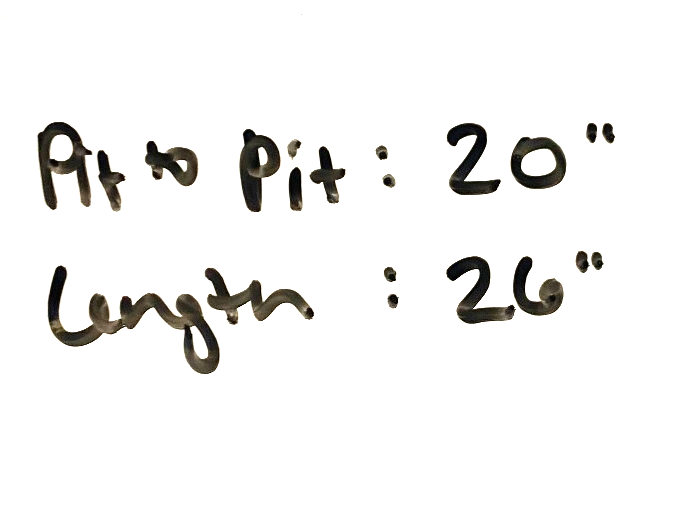 Pit to Pit : 20"
Length : 26"